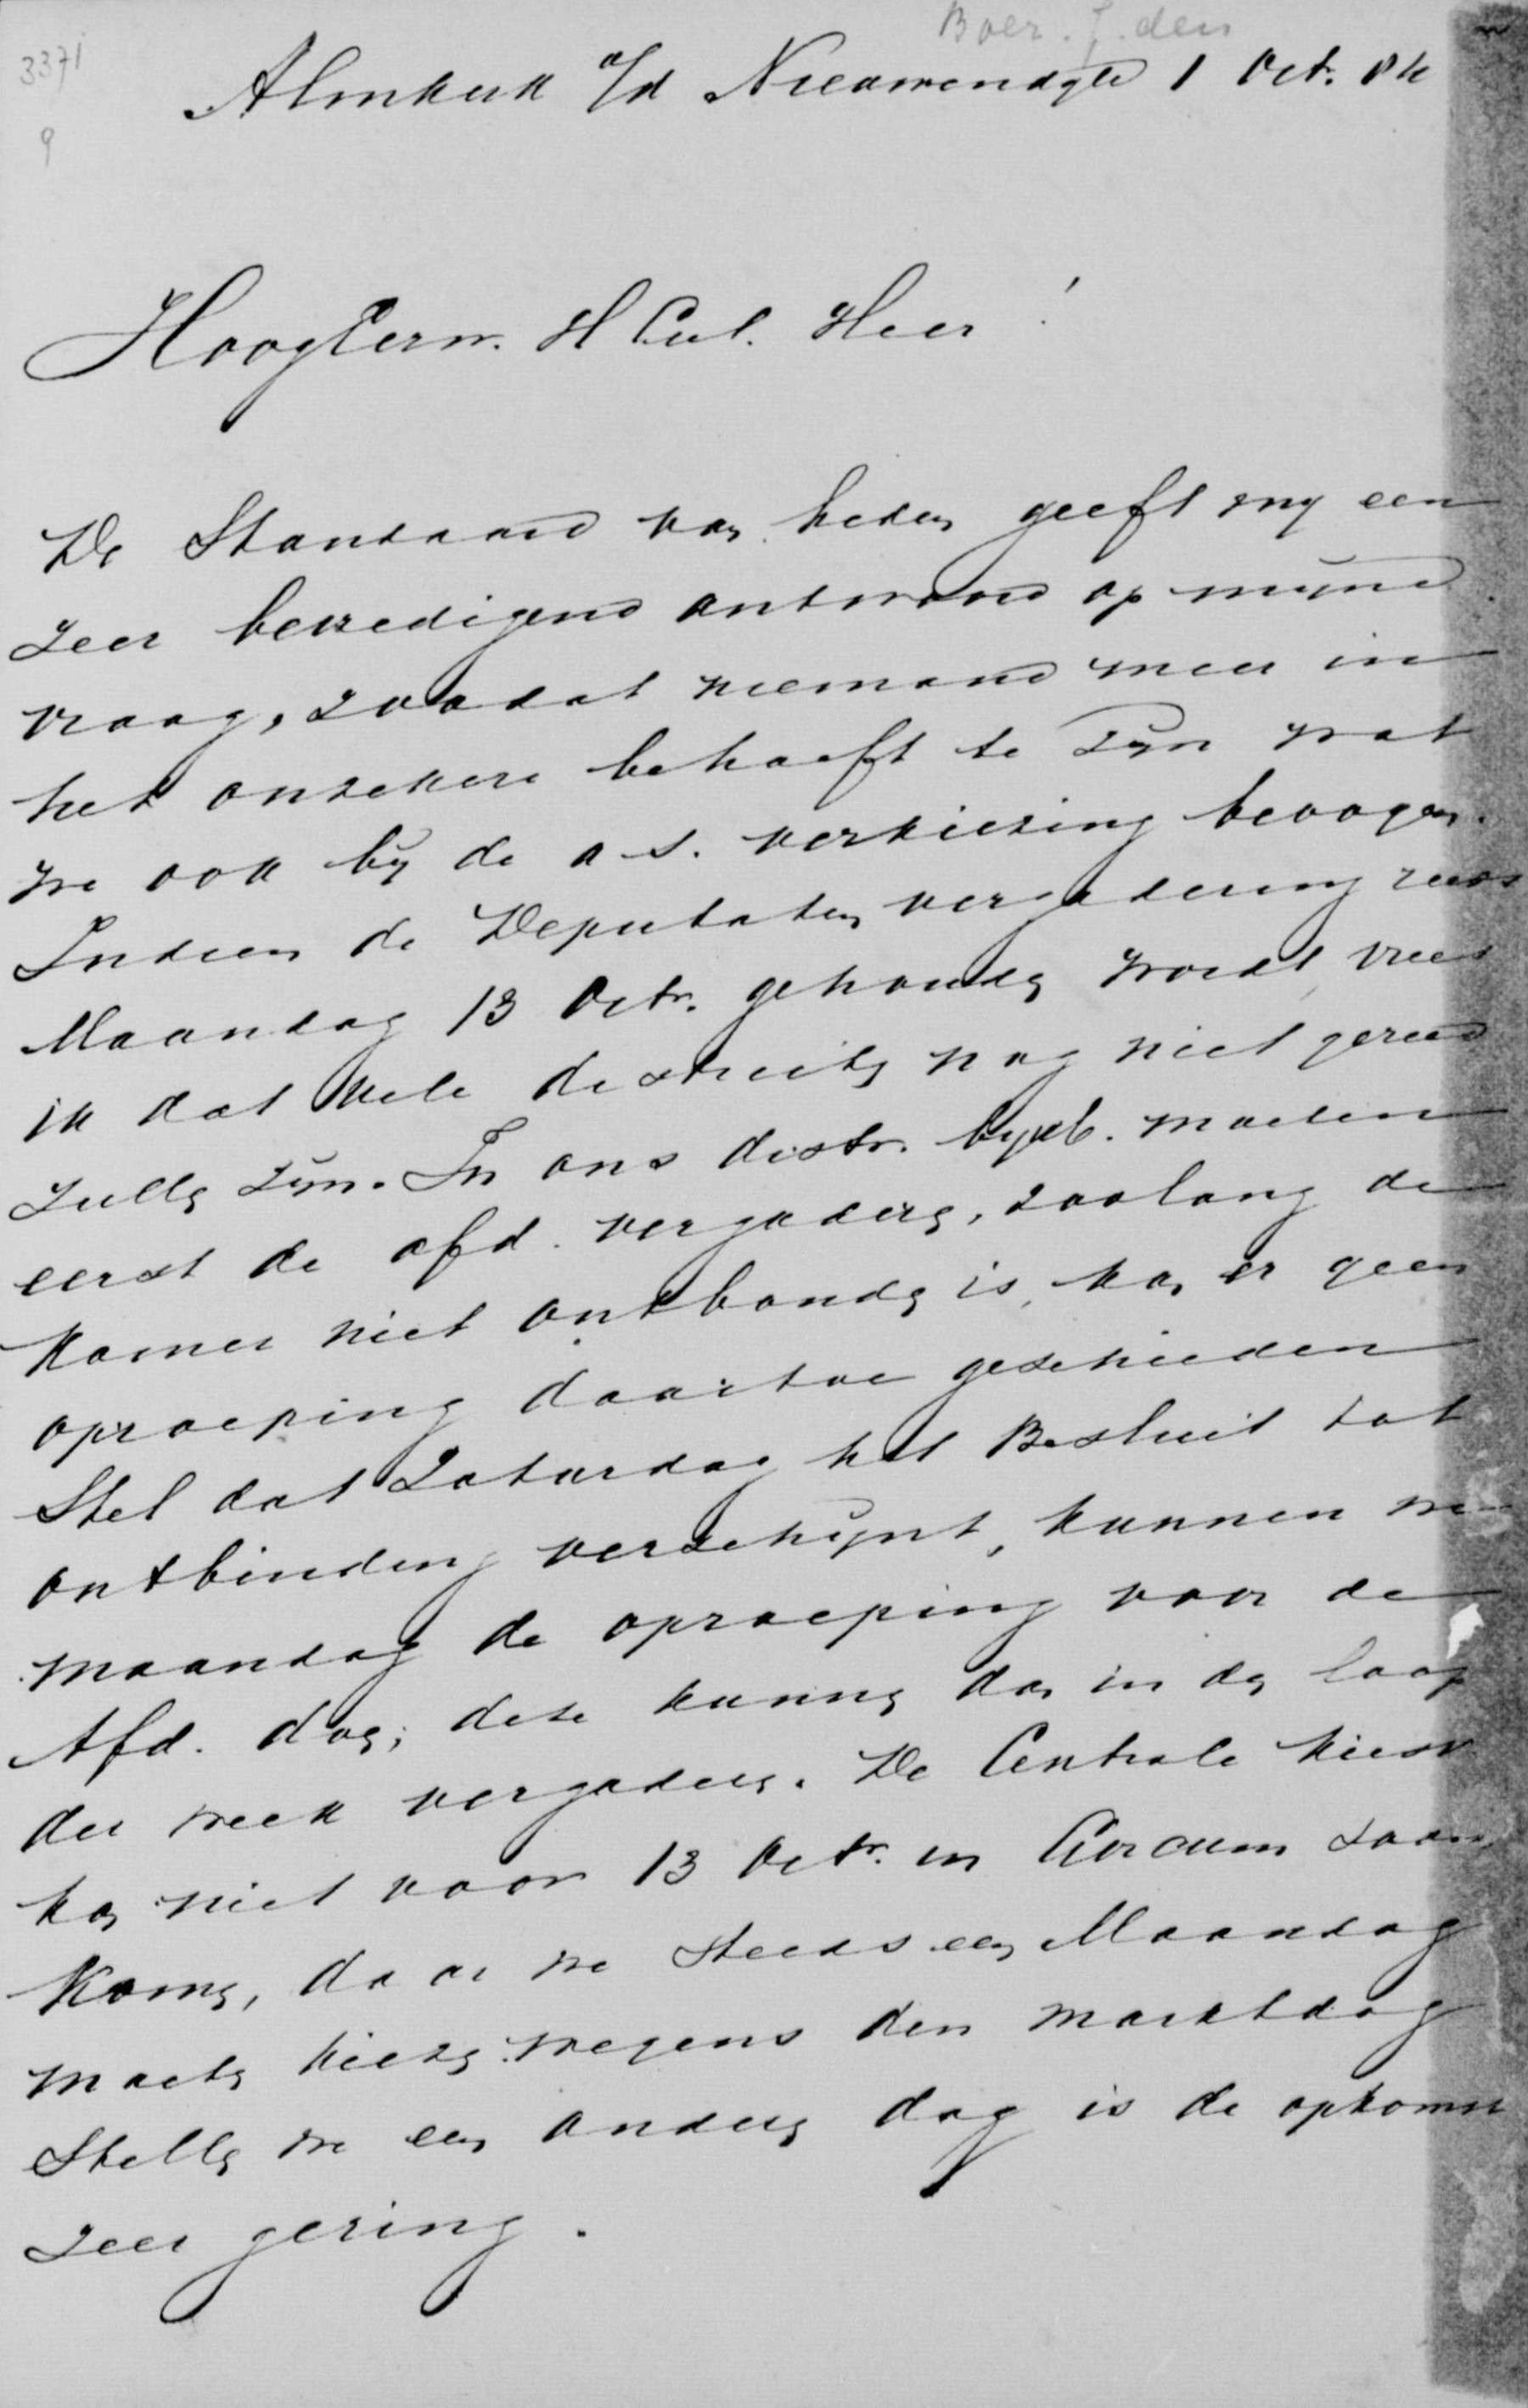 Boer. J. den
3371
9
Almkerk a/d Nieuwendyk 1 Oct. 84
HoogEerw. H Gel. Heer!
De Standaard van heden geeft my een
zeer bevredigend antwoord op myne
vraag, zoodat niemand meer in
het onzekere behoeft te zyn wat
we ook by de a s. verkiezing beoogen.
Indien de Deputaten vergadering reeds
Maandag 13 Octr. gehouden wordt, vrees
ik dat vele districten nog niet gereed
zullen zyn. In ons distr. byvb. moeten
eerst de afd. vergaderen, zoolang de
Kamer niet ontbonden is, kan er geen
oproeping daartoe geschieden
Stel dat Zaturdag het Besluit tot
ontbinding verschynt, kunnen we
maandag de oproeping voor de
Afd. doen; deze kunnen dan in den loop
der week vergaderen. De Centrale Kiesv.
kan niet voor 13 Octr. in Gorcum saam
komen, daar we steeds een Maandag
moeten kiezen wegens den marktdag
Stellen we een anderen dag is de opkomst
zeer gering.